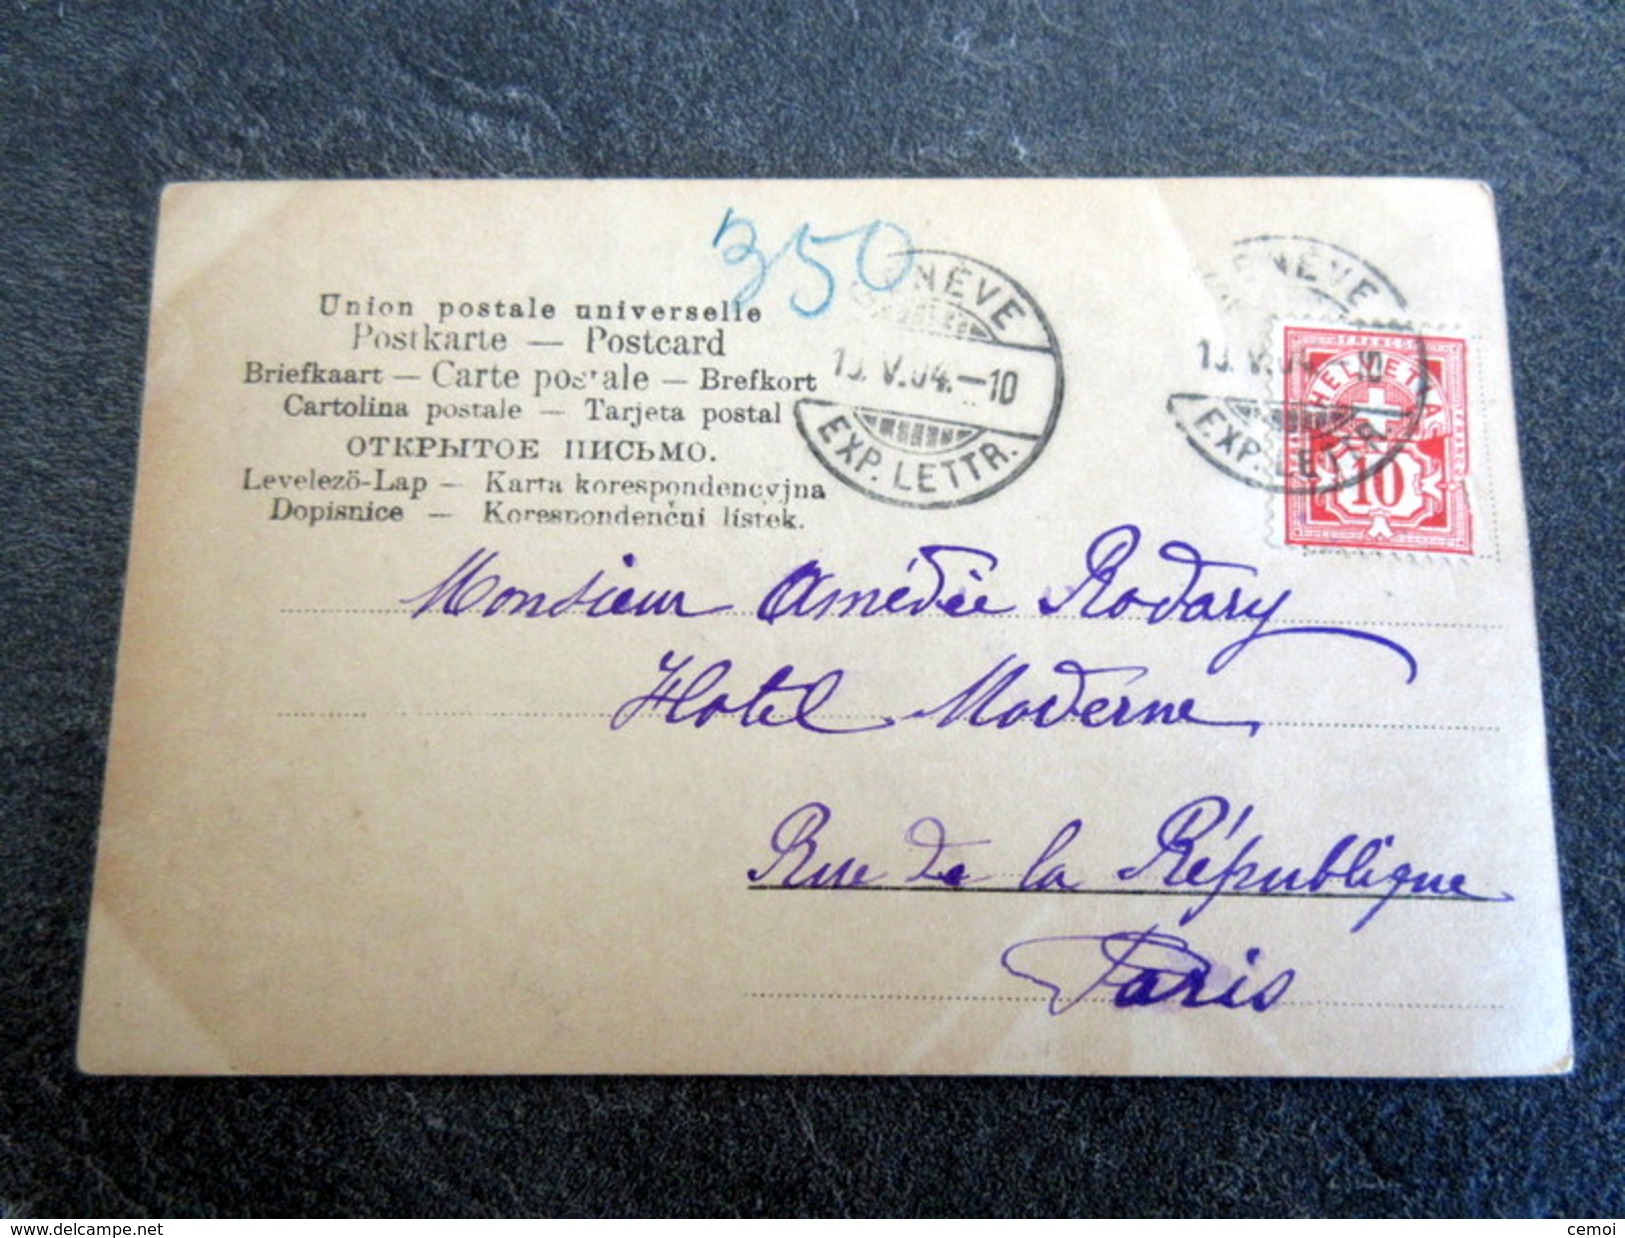 350
Union postale universelle
Postkarte — Postcard
Briefkaart — Carte postale — Brefkort
Cartolina postale — Tarjeta postal
ОТКРЫТОЕ ПИСЬМО.
Levelezö-Lap — Karta korespondencyjna
Dopisnice — Korespondenční lístek.
GENÈVE
V.04.—10
EXP. LETTR.
GENÈVE
EXP. LETTR.
FRANCO
HELVETIA
10
Monsieur Amédée Rodary
Hotel Moderne
Rue de la République
Paris
www.delcampe.net
cemoi